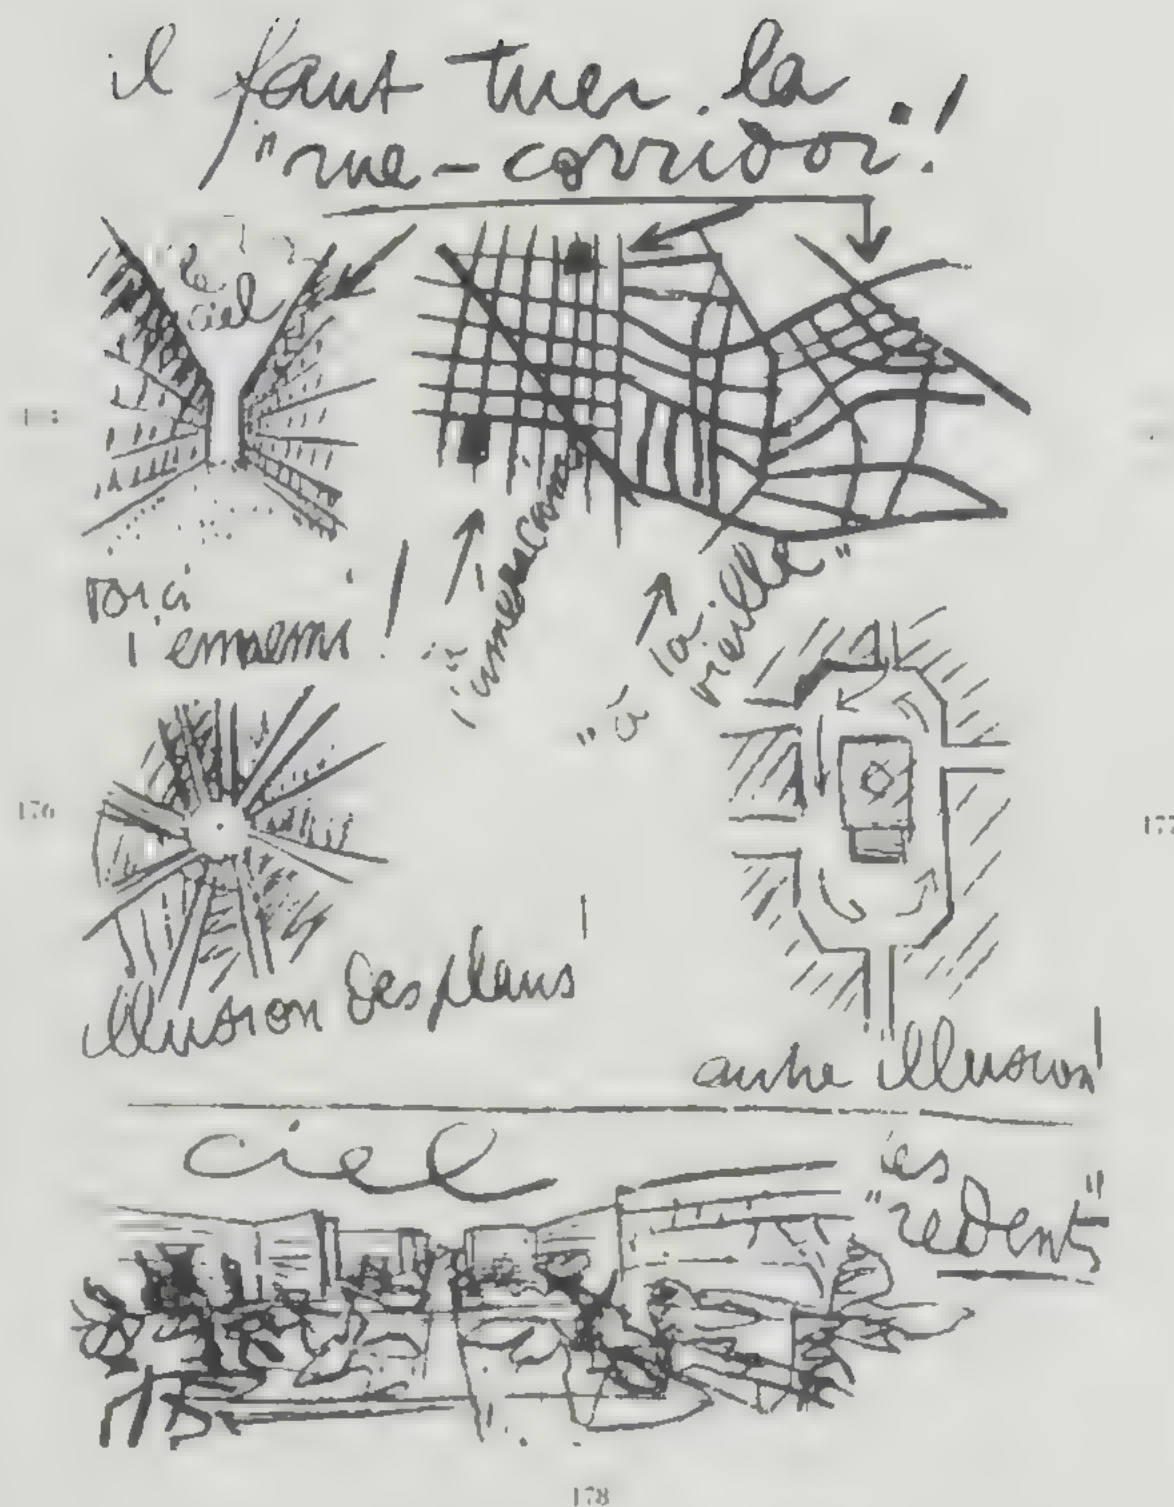 il faut tuer la
"rue-corridor"!
le
ciel
voici
l'ennemi!
à
l'américaine
"à la
vieille"
176
177
illusion des plans!
autre illusion!
ciel
les
"redents"
178